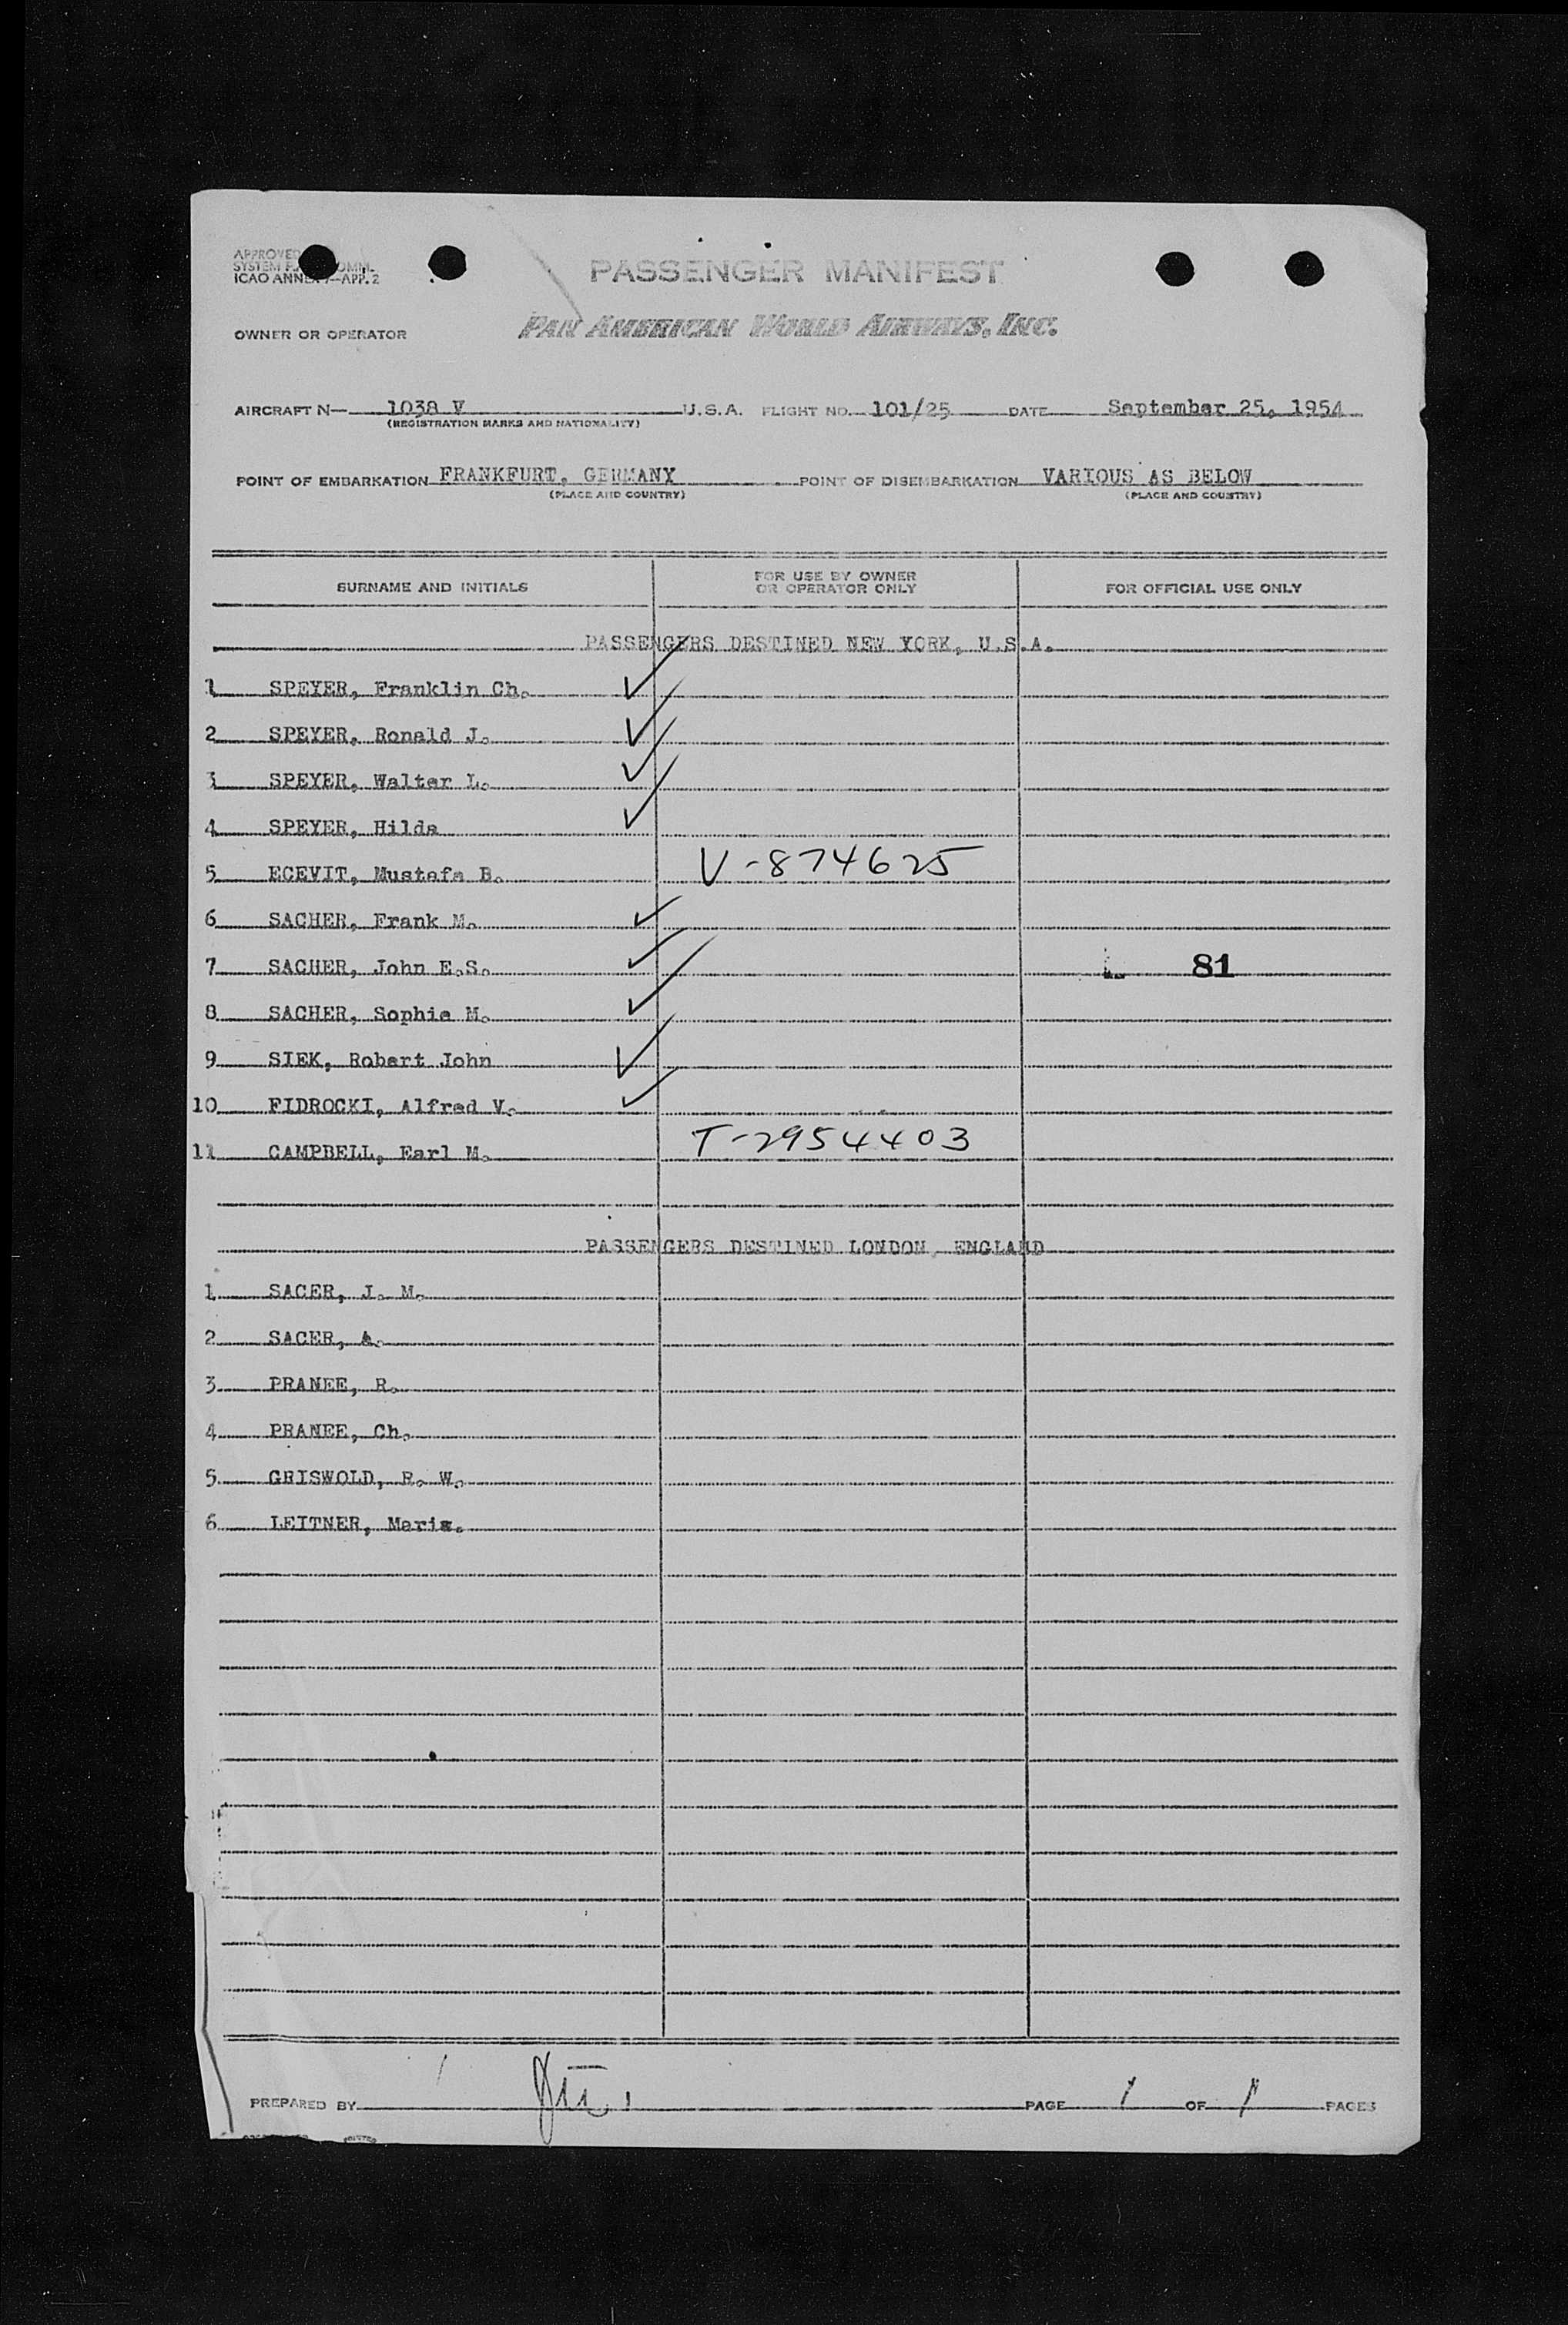 APPROVED
SYSTEM
ICAO ANNEX 9—APP. 2
PASSENGER MANIFEST
OWNER OR OPERATOR PAN AMERICAN WORLD AIRWAYS, INC.
AIRCRAFT N— 1038 V U.S.A. FLIGHT NO. 101/25 DATE September 25, 1954
(REGISTRATION MARKS AND NATIONALITY)
POINT OF EMBARKATION FRANKFURT, GERMANY POINT OF DISEMBARKATION VARIOUS AS BELOW
(PLACE AND COUNTRY) (PLACE AND COUNTRY)
SURNAME AND INITIALS FOR USE BY OWNER OR OPERATOR ONLY FOR OFFICIAL USE ONLY
PASSENGERS DESTINED NEW YORK, U.S.A.
1 SPEYER, Franklin Ch. ✓
2 SPEYER, Ronald J. ✓
3 SPEYER, Walter L. ✓
4 SPEYER, Hilda ✓
5 ECEVIT, Mustafa B. V-874625
6 SACHER, Frank M. ✓
7 SACHER, John E.S. ✓ 81
8 SACHER, Sophie M. ✓
9 SIEK, Robert John ✓
10 FIDROCKI, Alfred V. ✓
11 CAMPBELL, Earl M. T-2954403
PASSENGERS DESTINED LONDON, ENGLAND
1 SACER, J. M.
2 SACER, A.
3 PRANEE, R.
4 PRANEE, Ch.
5 GRISWOLD, R. W.
6 LEITNER, Maria.
PREPARED BY PAGE 1 OF 1 PAGES